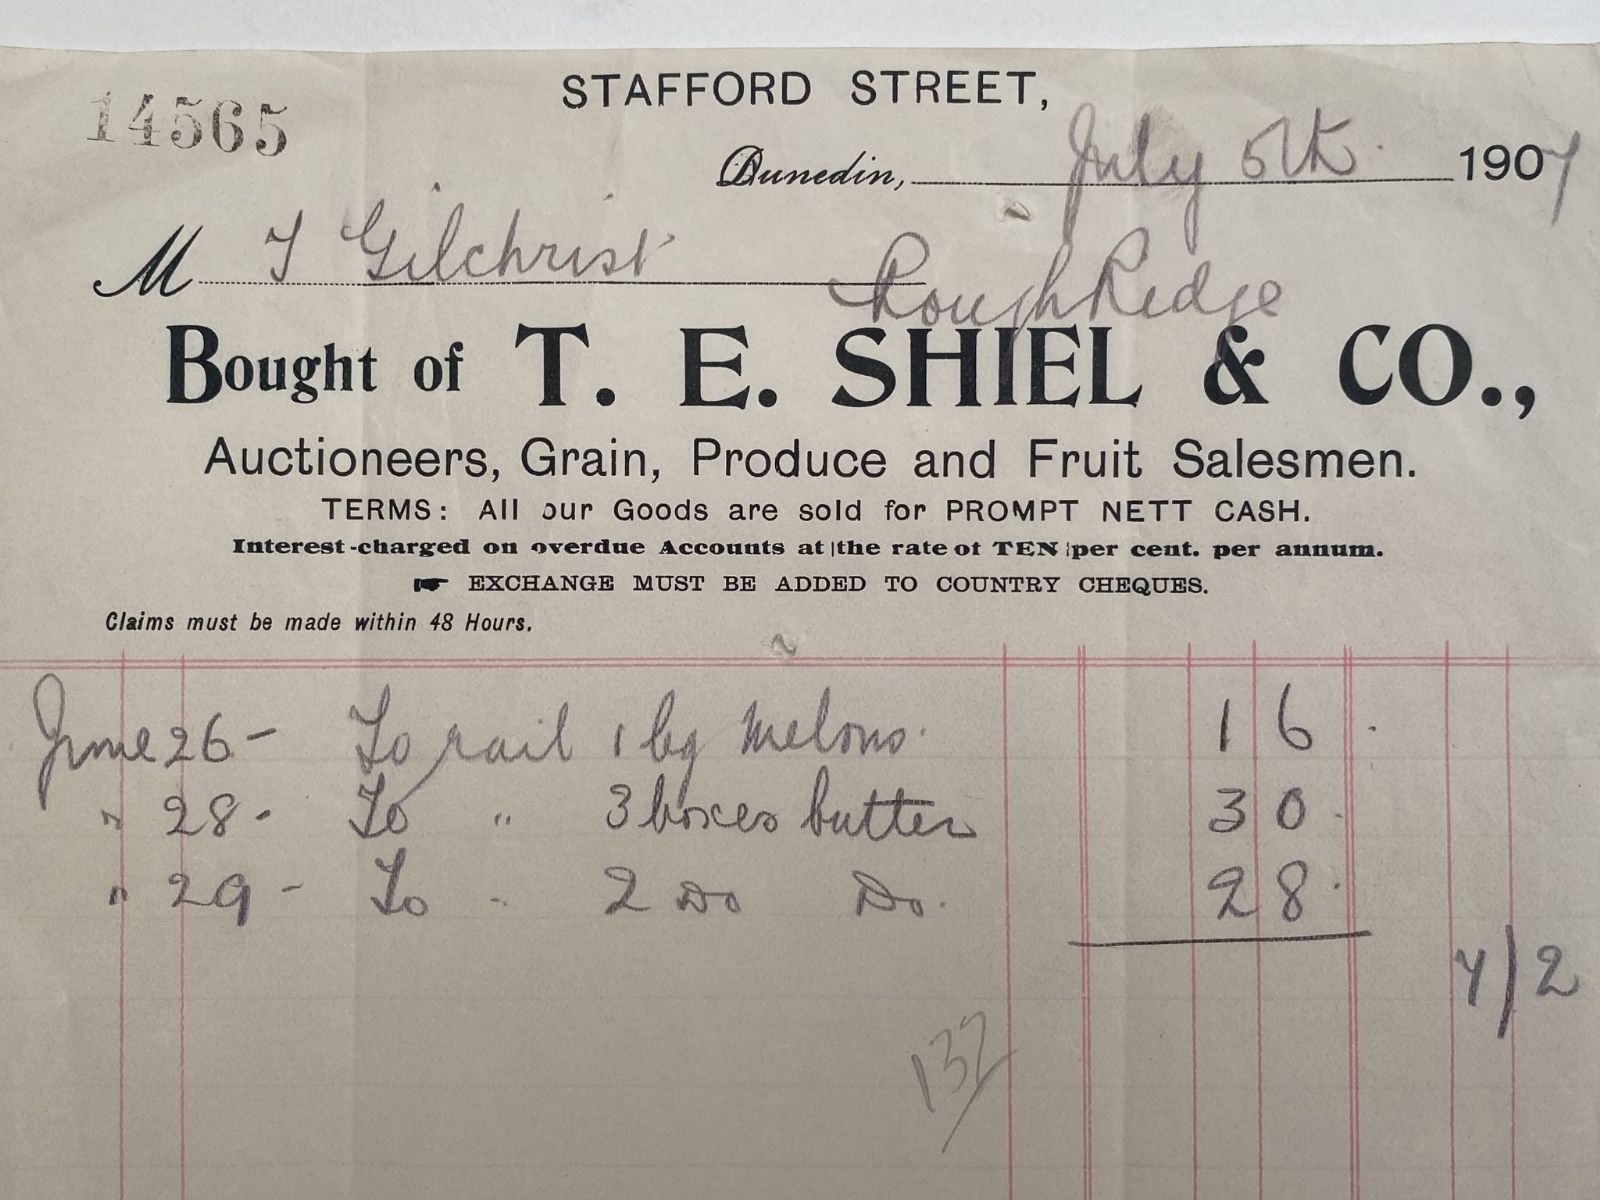 STAFFORD STREET,
14565
Dunedin, July 5th. 1907
M T Gilchrist
Rough Ridge
Bought of T. E. SHIEL & CO.,
Auctioneers, Grain, Produce and Fruit Salesmen.
TERMS: All our Goods are sold for PROMPT NETT CASH.
Interest-charged on overdue Accounts at the rate of TEN per cent. per annum.
☛ EXCHANGE MUST BE ADDED TO COUNTRY CHEQUES.
Claims must be made within 48 Hours.
June 26 - To rail 1 bg Melons. 1 6 .
" 28 - To " 3 boxes butter 3 0 .
" 29 - To " 2 Do Do. 2 8 .
7/2
132